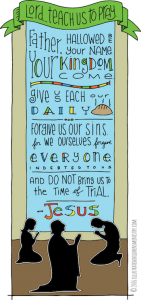 Lord, teach us to pray
Father, HALLOWED be
YOUR NAME
YOUR KINGDOM
COME
GIVE US EACH OUR
DAILY
FORGIVE US OUR SINS
for WE OURSELVES forgive
everyone
INDEBTED TO US
AND DO NOT BRING US to
the TIME of TRIAL.
-Jesus